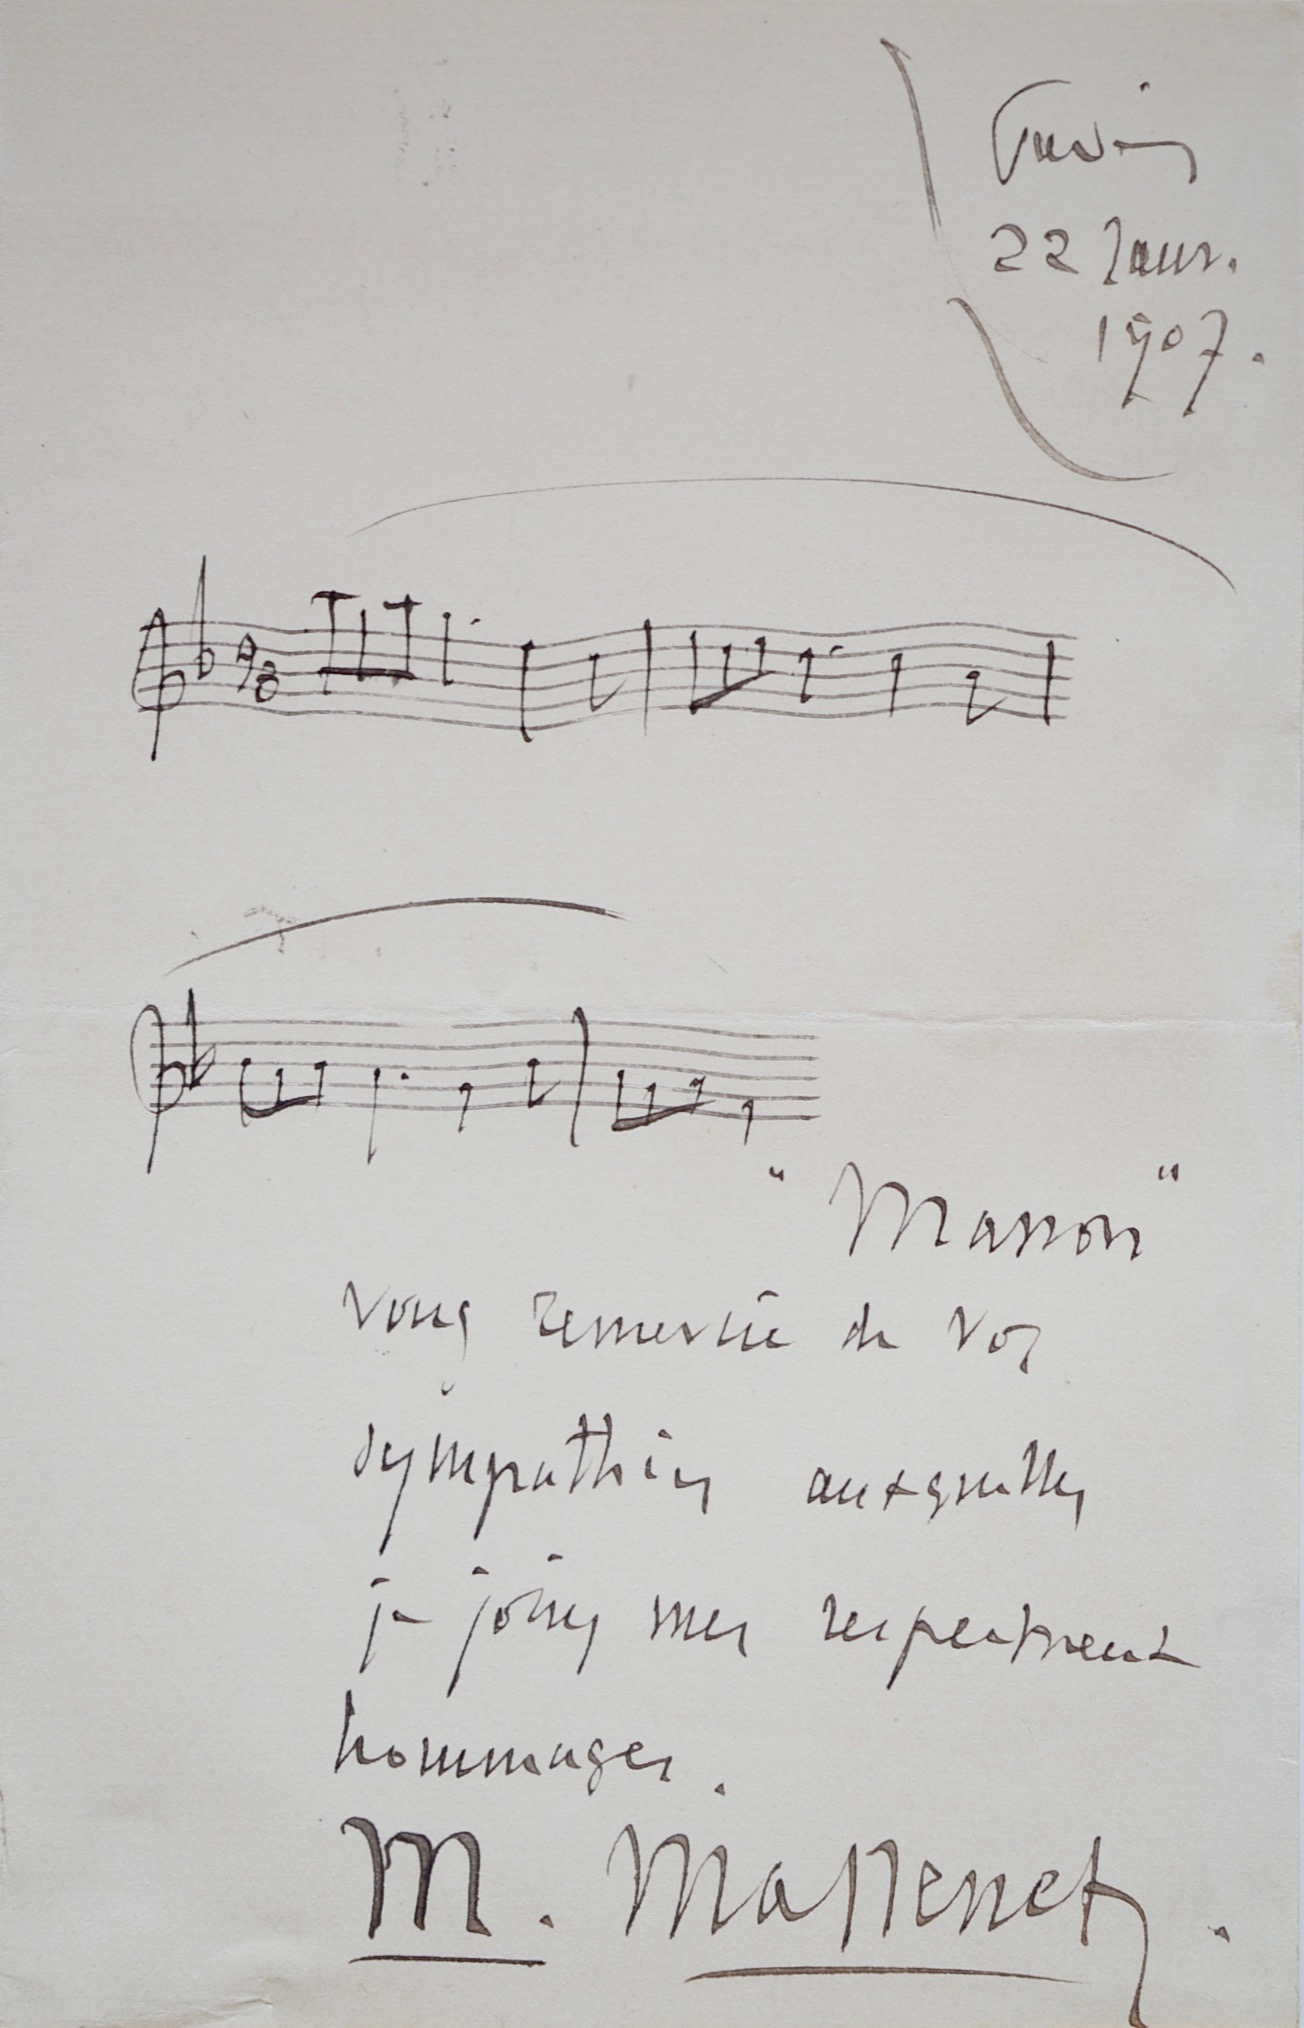 Paris
22 Janv.
1907.
9
8
"Manon"
vous remercie de vos
sympathies auxquelles
je joins mes respectueux
hommages.
M. Massenet.